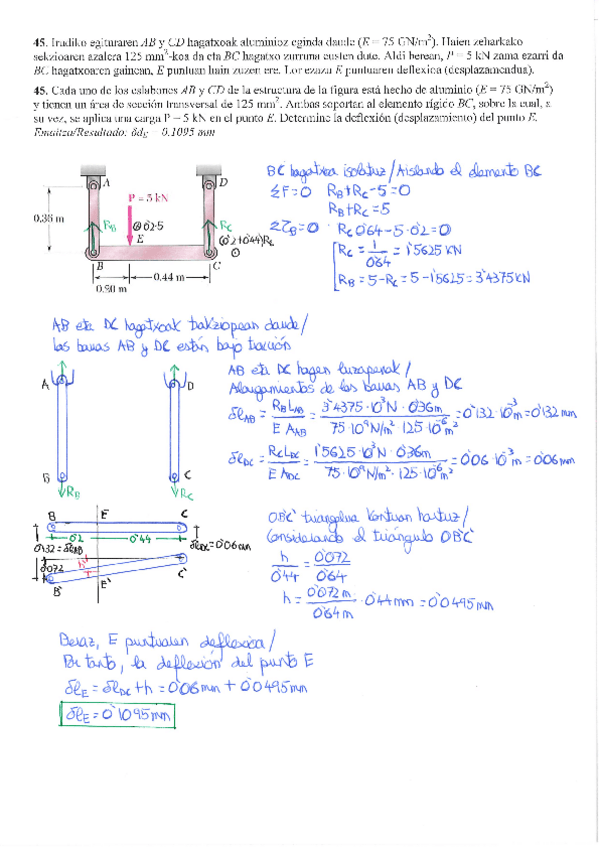 45. Irudiko egituraren AB y CD hagatxoak aluminioz eginda daude (E = 75 GN/m²). Haien zeharkako
sekzioaren azalera 125 mm²-koa da eta BC hagatxo zurruna eusten dute. Aldi berean, P = 5 kN zama ezarri da
BC hagatxoaren gainean, E puntuan hain zuzen ere. Lor ezazu E puntuaren deflexioa (desplazamendua).
45. Cada uno de los eslabones AB y CD de la estructura de la figura está hecho de aluminio (E = 75 GN/m²)
y tienen un área de sección transversal de 125 mm². Ambas soportan al elemento rígido BC, sobre la cual, a
su vez, se aplica una carga P = 5 kN en el punto E. Determine la deflexión (desplazamiento) del punto E.
Emaitza/Resultado: δd_E = 0.1095 mm
BC hagatxoa isolatuz/Aislando el elemento BC
ΣF=0 R_B+R_C-5=0
R_B+R_C=5
ΣZ_B=0 R_C 0'64-5·0'2=0
R_C = 1/0'64 = 1'5625 kN
R_B=5-R_C=5-1'5625=3'4375 kN
A D
P = 5 kN
0.36 m
R_B 0'2·5 R_C
E (0'2+0'44)R_C
B C
0.44 m
0.20 m
AB eta DC hagatxoak trakziopean daude/
las barras AB y DC están bajo tracción
AB eta DC hagen luzapenak/
Alargamientos de las barras AB y DC
δl_AB = R_B L_AB / E A_AB = 3'4375·10³N·0'36m / 75·10⁹N/m²·125·10⁻⁶m² = 0'132·10⁻³m = 0'132 mm
δl_DC = R_C L_DC / E A_DC = 1'5625·10³N·0'36m / 75·10⁹N/m²·125·10⁻⁶m² = 0'06·10⁻³m = 0'06mm
A D
B C
R_B R_C
B E C
0'2 0'44
0'132=δl_AB δl_DC=0'06mm
0'072 h
B' E' C'
OB'C' triangelua kontuan hartuz/
Considerando el triángulo OB'C'
h/0'44 = 0'072/0'64
h = 0'072m/0'64m · 0'44mm = 0'0495mm
Beraz, E puntuaren deflexioa/
Por tanto, la deflexión del punto E
δl_E = δl_DC + h = 0'06mm + 0'0495mm
δl_E = 0'1095mm